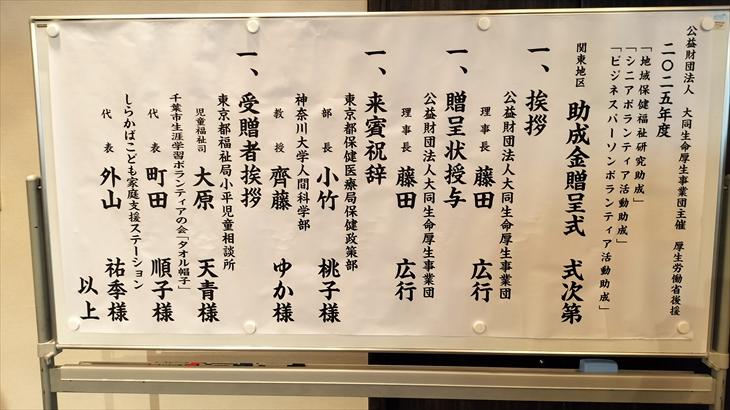 公益財団法人 大同生命厚生事業団主催 厚生労働省後援
二〇二五年度
「地域保健福祉研究助成」
「シニアボランティア活動助成」
「ビジネスパーソンボランティア活動助成」
関東地区 助成金贈呈式 式次第
一、挨拶
公益財団法人大同生命厚生事業団
理事長 藤田 広行
一、贈呈状授与
公益財団法人大同生命厚生事業団
理事長 藤田 広行
一、来賓祝辞
東京都保健医療局保健政策部
部長 小竹 桃子様
神奈川大学人間科学部
教授 齊藤 ゆか様
一、受贈者挨拶
東京都福祉局小平児童相談所
児童福祉司 大原 天青様
千葉市生涯学習ボランティアの会「タオル帽子」
代表 町田 順子様
しらかばこども家庭支援ステーション
代表 外山 祐季様
以上